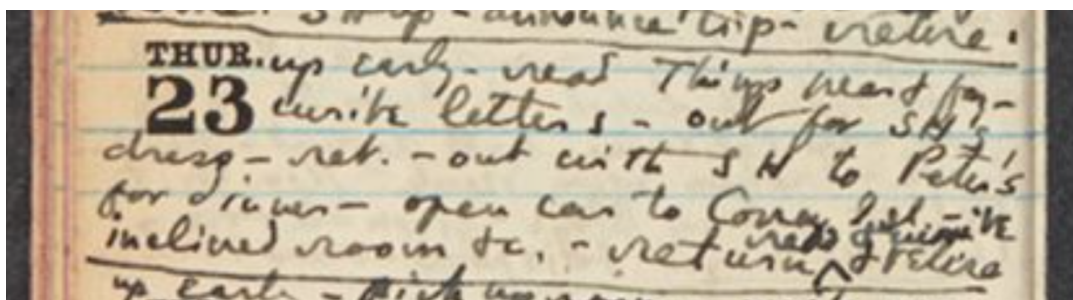 SH up - announce trip - retire.
THUR. up early - read Things near & far -
23 write letters - out for SH's
dress - ret. - out with SH to Peter's
for dinner - open car to Coney Isl. -
inclined room &c. - return, read & write & retire
up early -